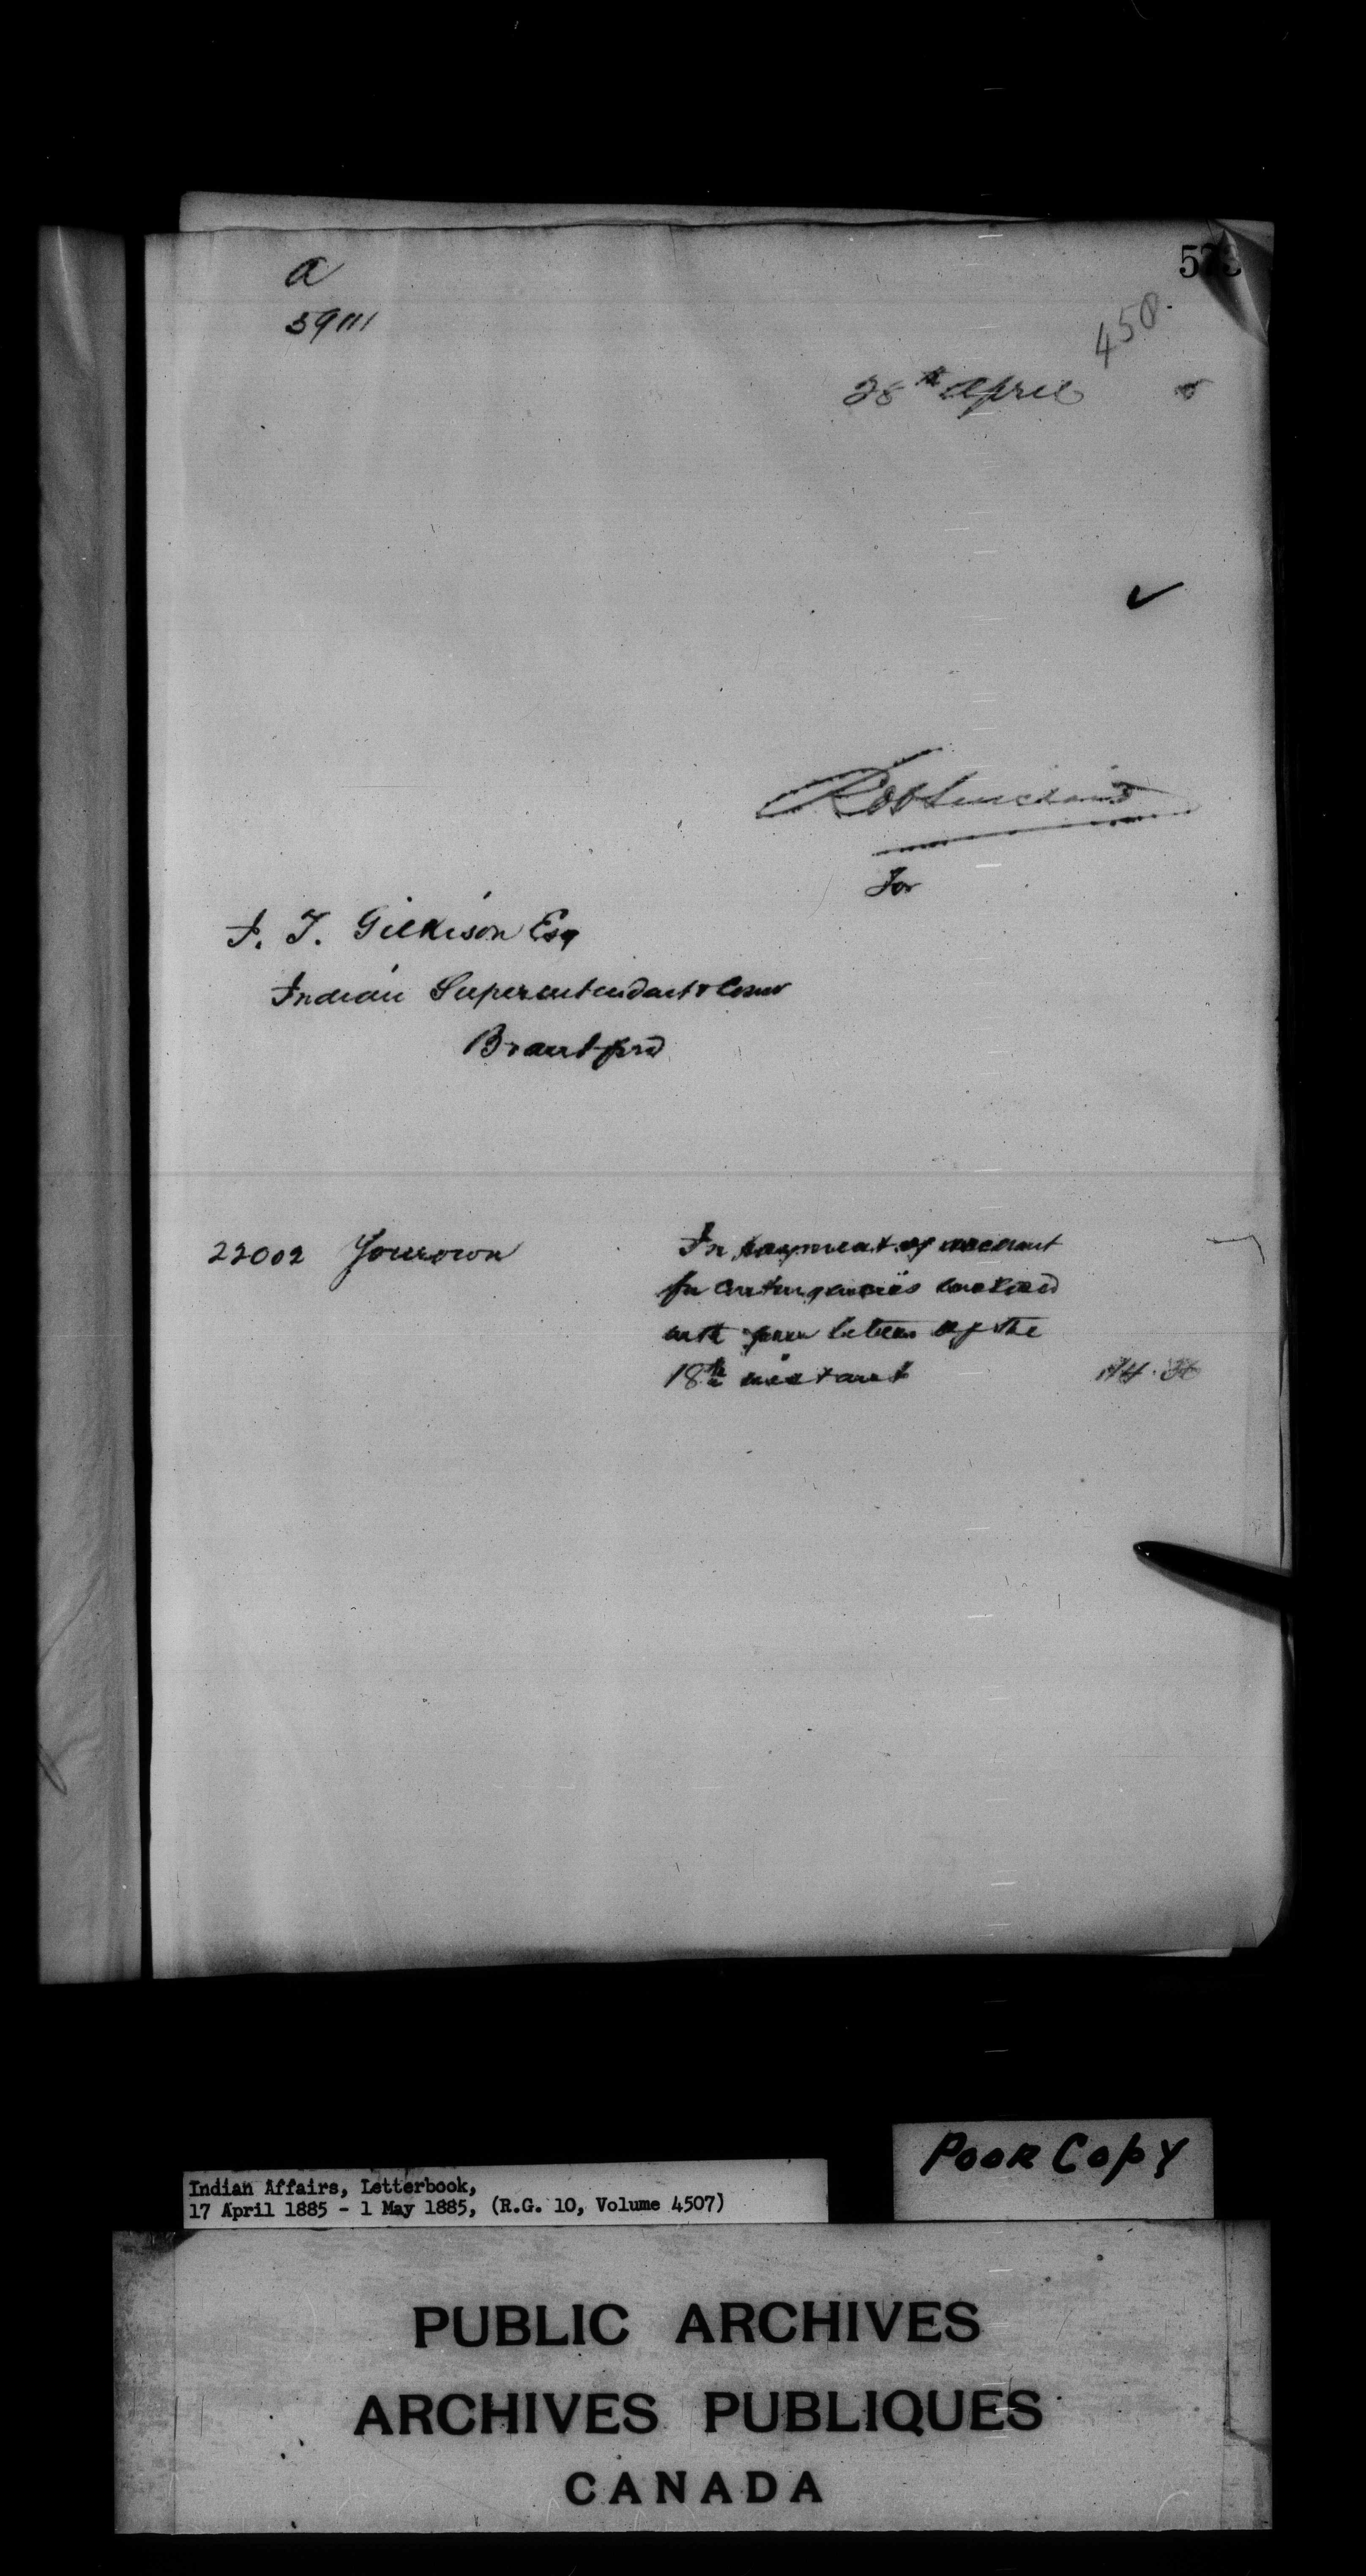 a
59111
450.
28th April
5
Robt Sinclair
For
J. T. Gilkison Esq
Indian Superintendent & Comr
Brantford
22002 Your own In payment of account
for contingencies enclosed
with your letter of the
18th instant
Poor Copy
Indian Affairs, Letterbook,
17 April 1885 - 1 May 1885, (R.G. 10, Volume 4507)
PUBLIC ARCHIVES
ARCHIVES PUBLIQUES
CANADA